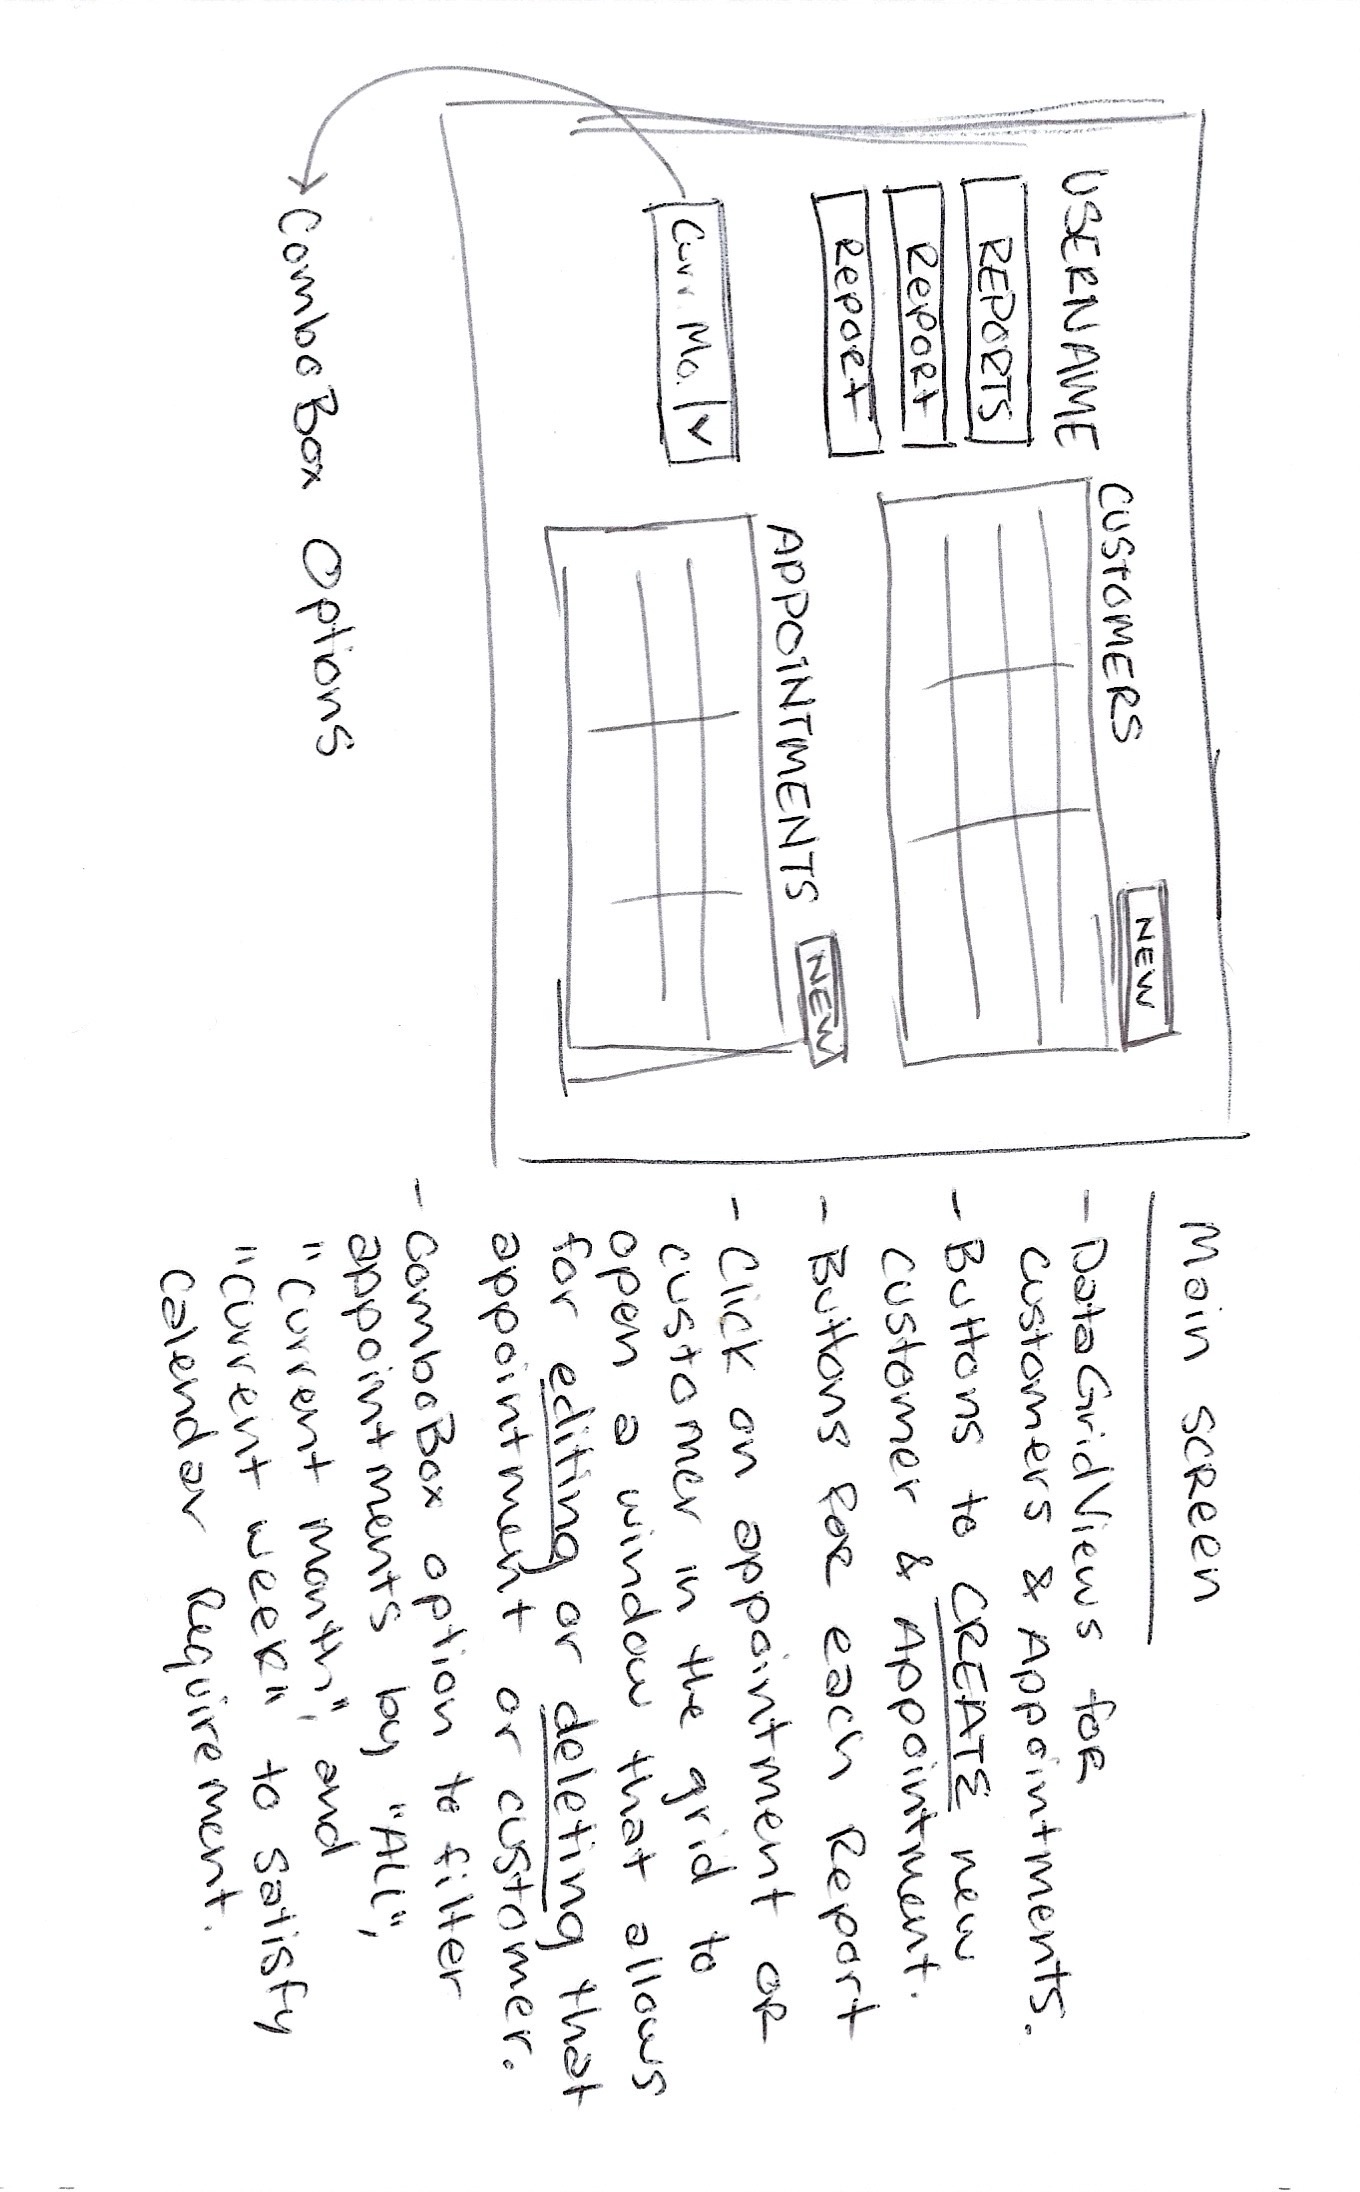 USERNAME
REPORTS
Report
Report
Curr. Mo.
CUSTOMERS
NEW
APPOINTMENTS
NEW
ComboBox Options
Main screen
- DataGridViews for
customers & Appointments.
- Buttons to CREATE new
customer & Appointment.
- Buttons for each Report
- Click on appointment or
customer in the grid to
open a window that allows
for editing or deleting that
appointment or customer.
- ComboBox option to filter
appointments by "ALL",
"Current Month", and
"Current week" to satisfy
Calendar Requirement.